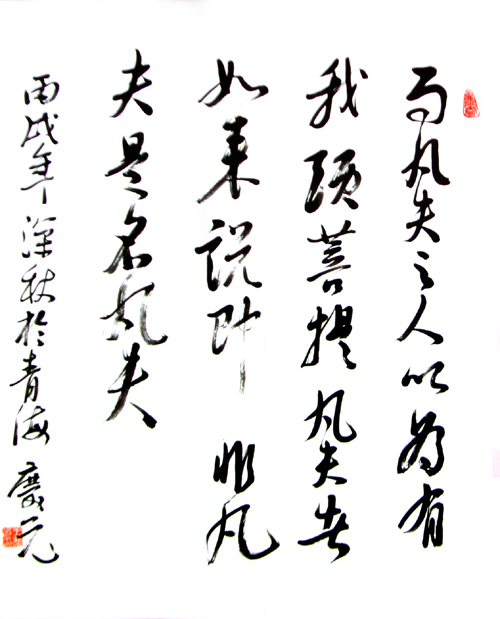 而凡夫之人以為有
我須菩提凡夫者
如来説即非凡
夫是名凡夫
丙戌年深秋於青海 慶元